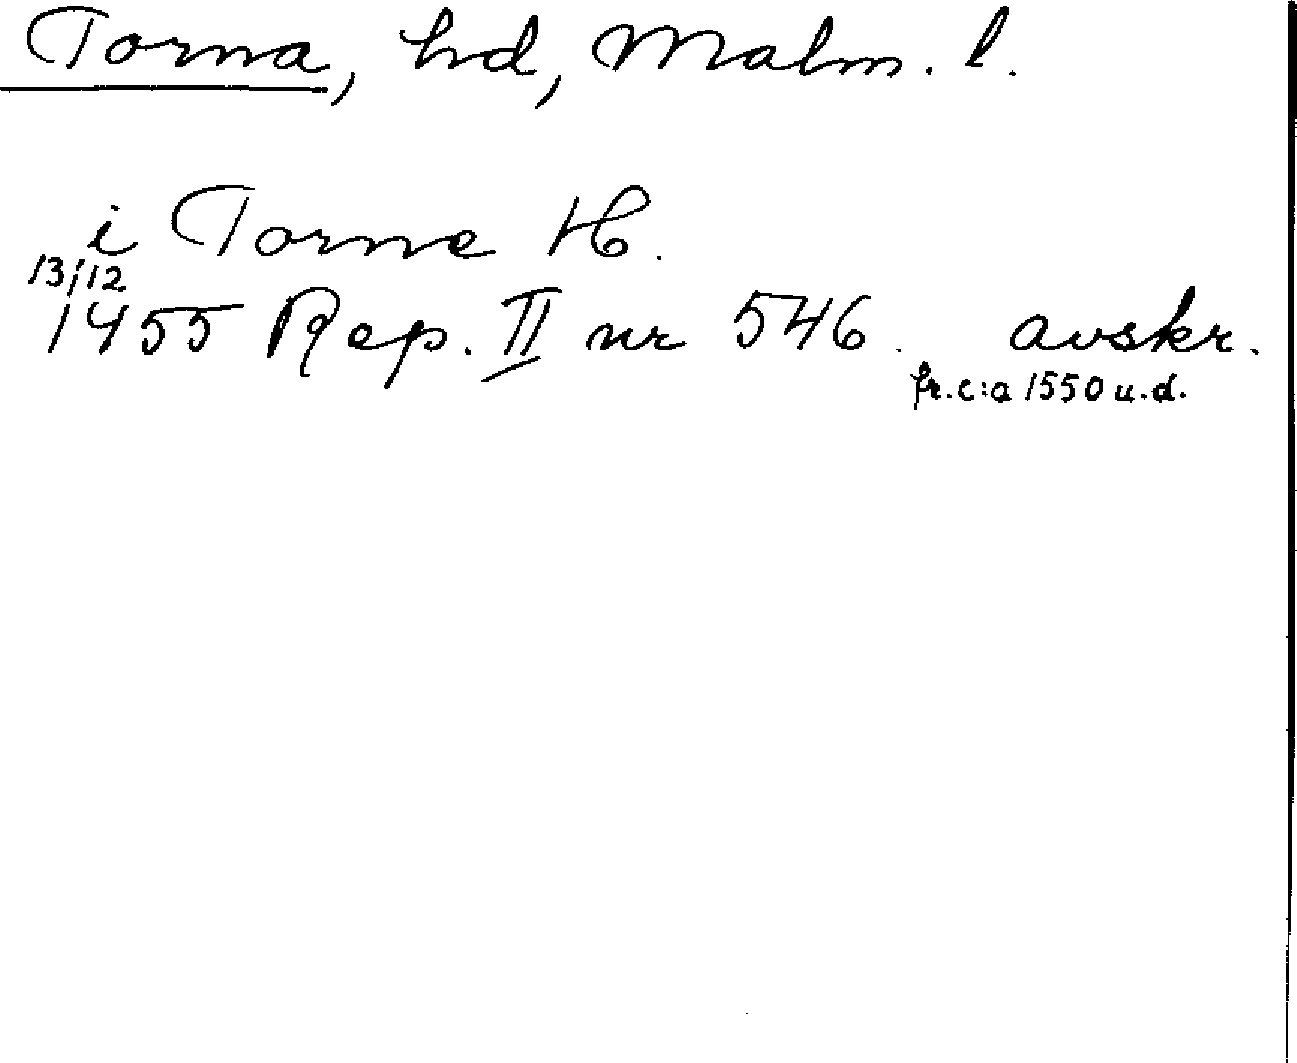 Torna, hd, Malm. l.
i Torne H.
13/12
1455 Rep. II nr 546. avskr.
fr. c:a 1550 u.d.